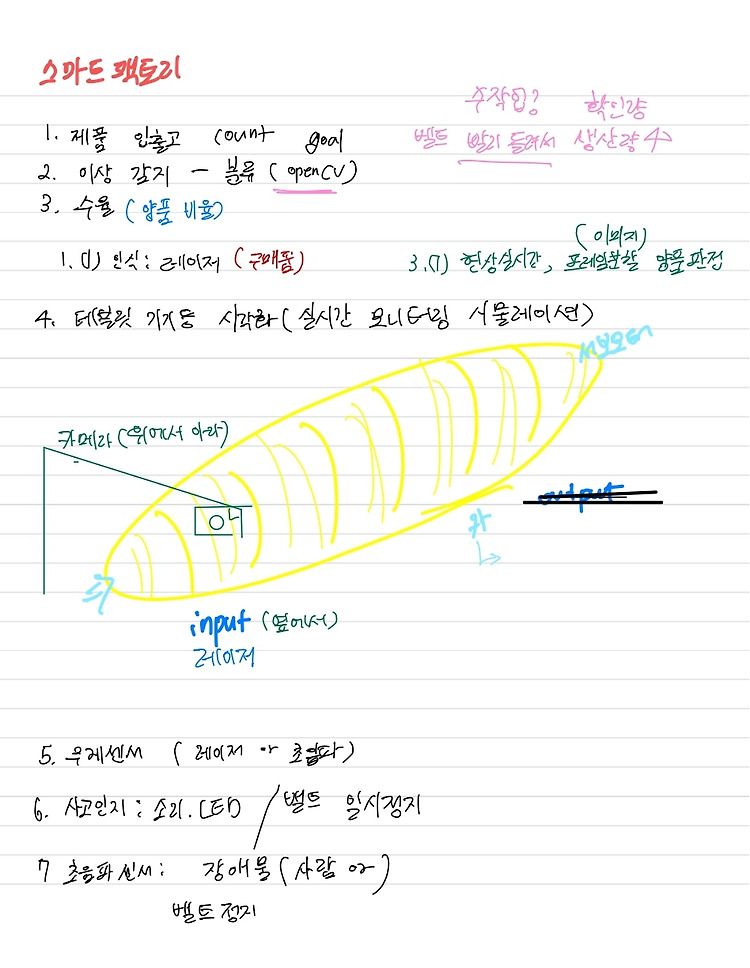 스마트 팩토리
수작업? 확인량
1. 제품 입출고 count goal
벨트 빨리 돌려서 생산량 수
2. 이상 감지 - 분류 (openCV)
3. 수율 (양품 비율)
1. (1) 인식 : 레이저 (구매품)
(이미지)
3.(1) 현상실시간, 프레임분할 양품판정
4. 테블릿 기기등 시각화 (실시간 모니터링 시뮬레이션)
서보모터
카메라 (위에서 아래)
output
input (옆에서)
레이저
5. 무게센서 (레이저 or 초음파)
6. 사고인지 : 소리. LED / 벨트 일시정지
7 초음파센서 : 장애물 (사람 or)
벨트정지